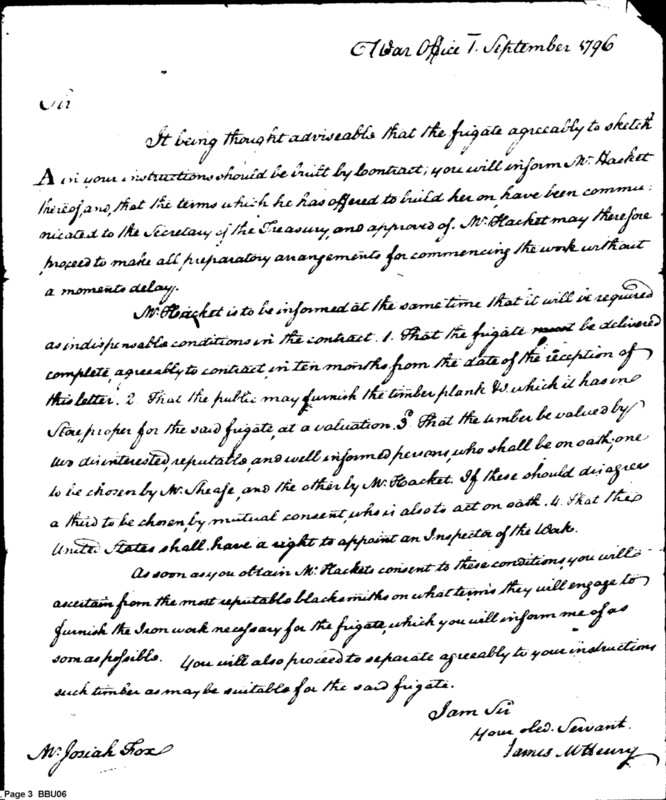 War Office 7. September 1796
Sir
It being thought adviseable that the frigate agreeably to sketch
A in your instructions should be built by Contract; you will inform Mr. Hacket
thereof, and, that the terms which he has offered to build her on, have been commu-
nicated to the Secretary of the Treasury, and approved of. Mr. Hacket may therefore
proceed to make all preparatory arrangements for commencing the work without
a moments delay.
Mr. Hacket is to be informed at the same time that it will be required
as indispensable conditions in the contract. 1. That the frigate must be delivered
complete, agreeably to contract, in ten months from the date of the reception of
this letter. 2 That the public may furnish the timber plank &c. which it has in
Store proper for the said frigate, at a valuation. 3. That the timber be valued by
two disinterested, reputable, and well informed persons, who shall be on oath; one
to be chosen by Mr. Sheafe, and the other by Mr. Hacket. If these should disagree
a third to be chosen, by mutual consent, who is also to act on oath. 4. That the
United States shall have a right to appoint an Inspector of the Work.
As soon as you obtain Mr. Hackets consent to these conditions you will
ascertain from the most reputable blacksmiths on what terms they will engage to
furnish the Iron work necessary for the frigate, which you will inform me of as
soon as possible. You will also proceed to separate agreeably to your instructions
such timber as may be suitable for the said frigate.
I am Sir
Your obed. Servant.
James McHenry
Mr. Josiah Fox
Page 3 BBU06